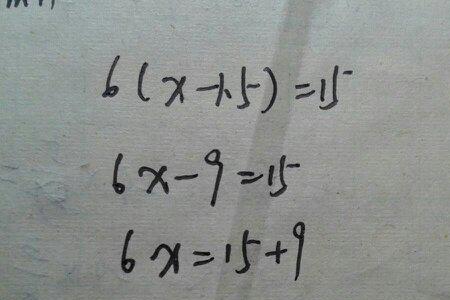 6(x-1.5)=15
6x-9=15
6x=15+9